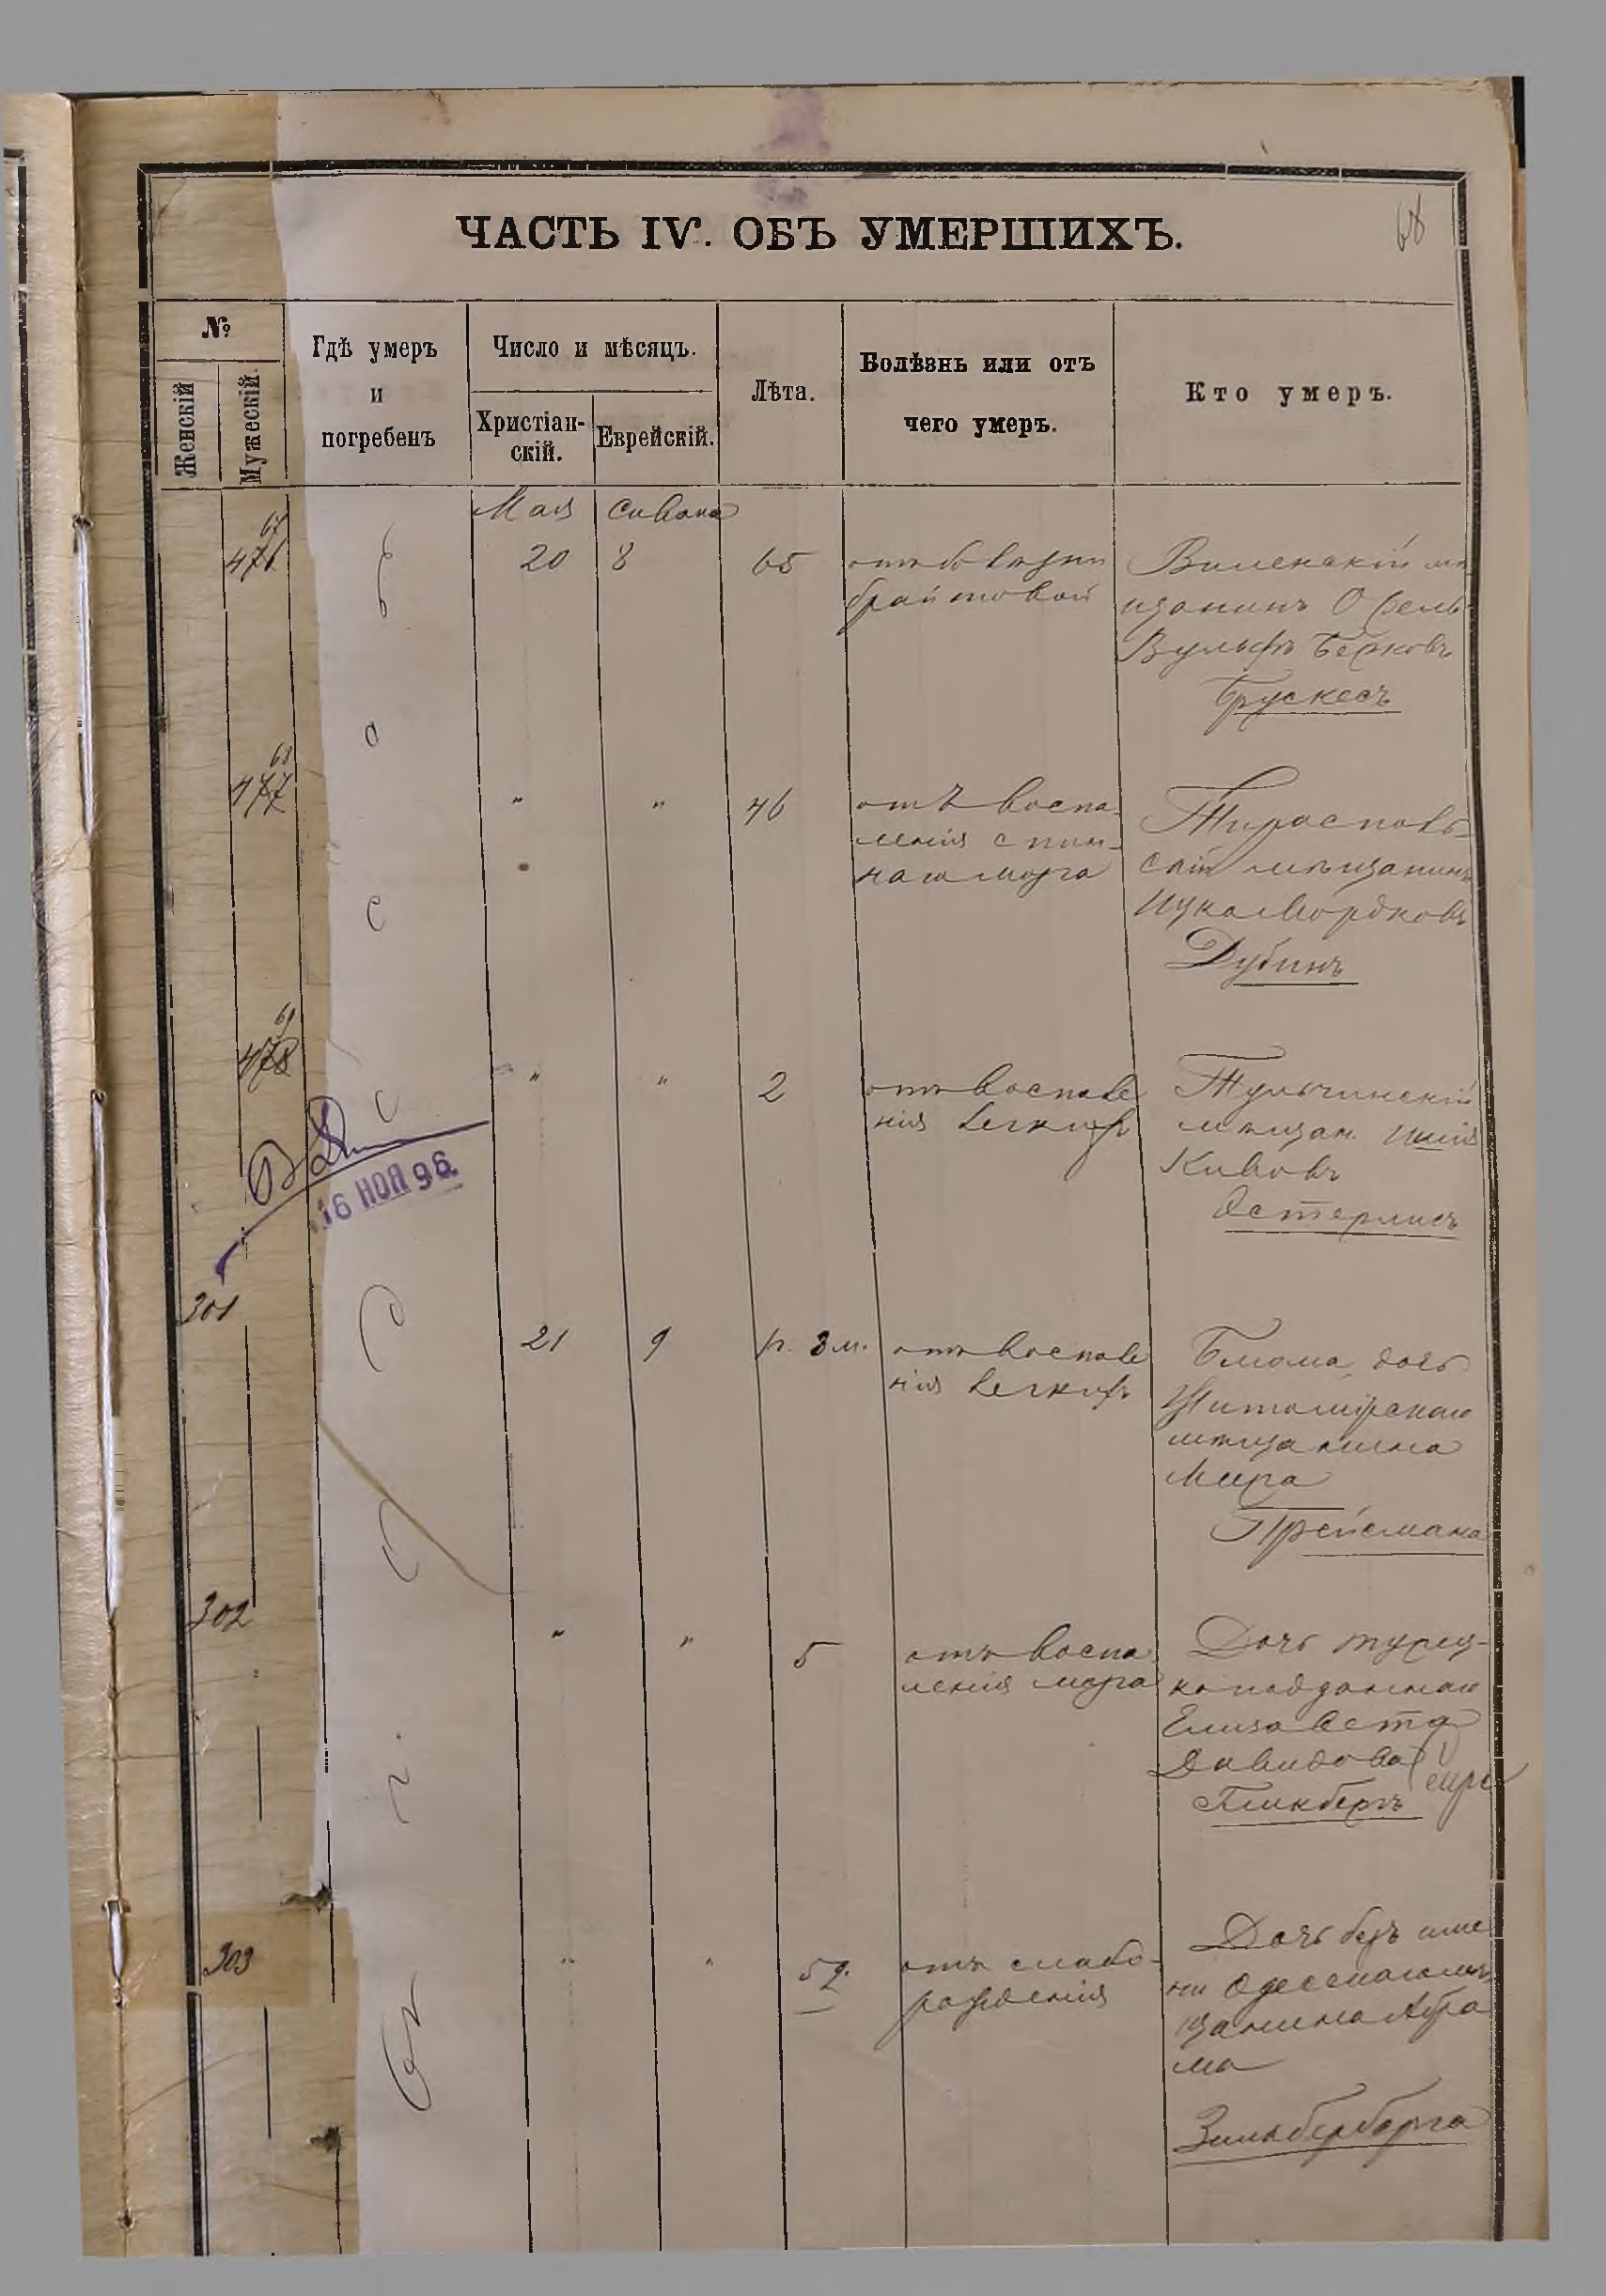 68
ЧАСТЬ IV. ОБЪ УМЕРШИХЪ.
№
Женскій
Мужескій.
Гдѣ умеръ
и
погребенъ
Число и мѣсяцъ.
Христіан-
скій.
Еврейскій.
Лѣта.
Болѣзнь или отъ
чего умеръ.
Кто умеръ.
Мая Сивана
67
476 20 8 65 отъ болѣзни
брайтовой
Виленскій мѣ
щанинъ
Вульфъ Берковъ
Брускесъ
68
477 " " 46 отъ воспа-
ленія спин-
наго мозга
Тирасполь-
скій мѣщанинъ
Ицко Мордковъ
Дубинъ
69
478 " " 2 отъ воспале
нія легкихъ
Тульчинскій
мѣщан.
Кивовъ
Остерлисъ
16 НОЯ 96
301 21 9 1 г. 3 м. отъ воспале
нія легкихъ
Блюма, дочь
Житомірскаго
мѣщанина
Меера
Прейсмана
302 " " 5 отъ воспа
ленія мозга
Дочь турец-
коподданнаго
Елизавета
Давидова
Гликбергъ
303 " " 5 д. отъ слабо-
рожденія
Дочь безъ име
ни Одесскаго мѣ
щанина Абра
ма
Зильберберга
Одесса